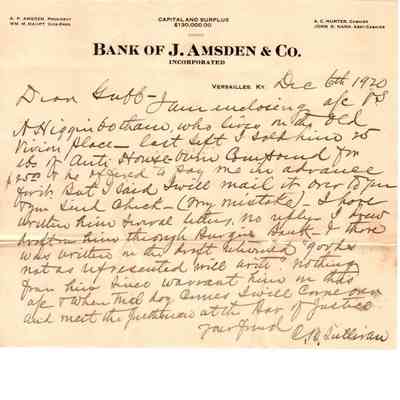 A. P. AMSDEN, PRESIDENT
WM. M. HAUPT, VICE-PRES.
CAPITAL AND SURPLUS
$130,000.00
A. C. HUNTER, CASHIER
JOHN D. NANE, ASST-CASHIER
BANK OF J. AMSDEN & CO.
INCORPORATED
VERSAILLES, KY. Dec 6th 1920
Dear Guff - I am enclosing a/c vs
A Higginbotham, who lives on the Old
Vivion place - last Sept I sold him 25
lbs of Anti Compound for
he offered to pay me in advance
for it. But I said I will mail it over to you
You send Check - (my mistake) - I have
written him several letters, no reply. I drew
draft on him through Burgin Bank - I there
was written on the draft returned "goods
not as represented will write". Nothing
from him since warrant him on this
a/c & when dog comes I will come over
and meet the gentleman at the Bar of Justice
Your friend
Sullivan